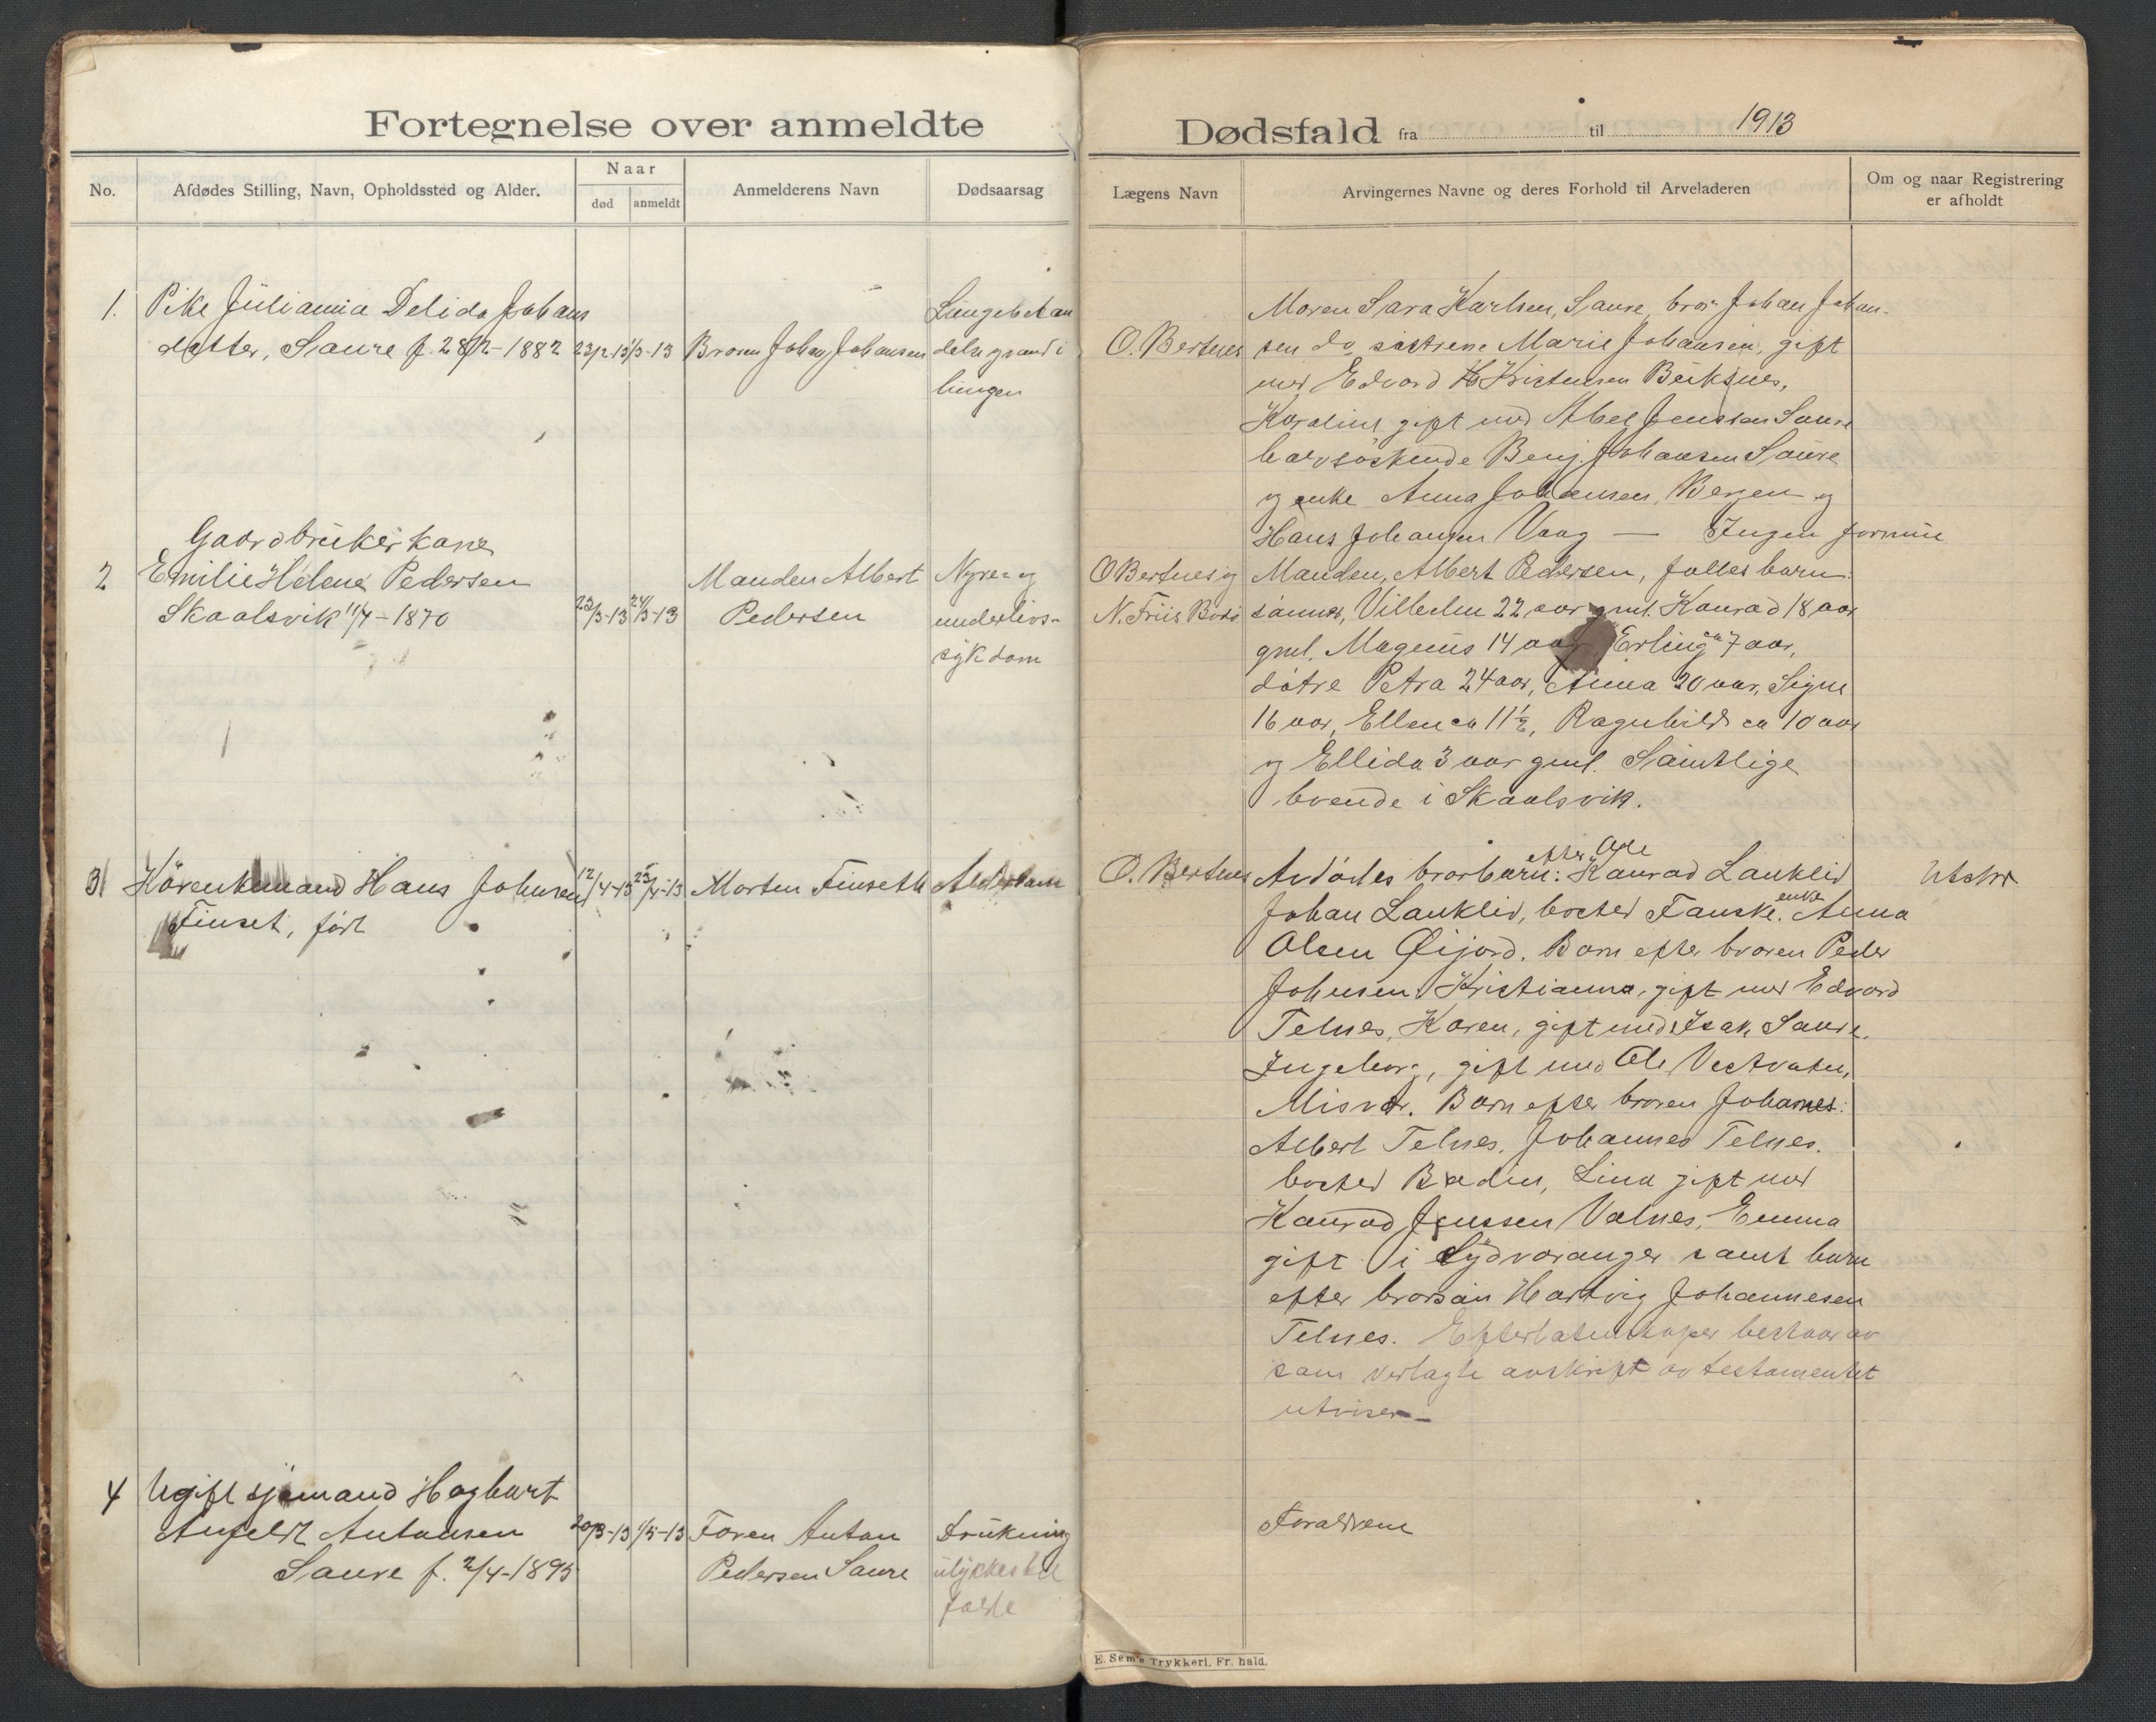 Fortegnelse over anmeldte
Dødsfald fra til 1913
No.
Afdødes Stilling, Navn, Opholdssted og Alder.
Naar
død
anmeldt
Anmelderens Navn
Dødsaarsag
Lægens Navn
Arvingernes Navne og deres Forhold til Arveladeren
Om og naar Registrering
er afholdt
1. Pike Julianna Delida Johans
datter, Saure f. 28/2-1882
23/2-13
1/3-13
Broren Johan Johansen
delse grand i
lungen
O. Bertnes
Moren Sara Karlsen, Saure, bror Johan Johan-
sen do, søstrene Marie Johansen, gift
med Edvard Kristensen
Karoline gift med Abel Jenssen Saure
halvsøskende Benj. Johansen Saure
og enke Anna Johansen, Bergen og
Hans Johansen Vaag — Ingen formue
2
Gaardbrukerkone
Emilie Helene Pedersen
Skaalsvik 11/7-1870
23/3-13
24/3-13
Manden Albert
Pedersen
Nyre- og
underlivs-
sykdom
O Bertnes og
N. Friis Bodø
Manden, Albert Pedersen, fælles barn:
sønner, Vilhelm 22 aar gml. Konrad 18 aar
gml. Magnus 14 aar Erling ca 7 aar,
døtre Petra 24 aar, Anna 20 aar, Signe
16 aar, Ellen ca 11½, Ragnhild ca 10 aar
og Ellida 3 aar gml. Samtlige
boende i Skaalsvik.
3
Kårenkmand Hans Johnsen
Finset, født
12/4-13
25/4-13
Morten Finseth
Alderdom
O. Bertnes
efter Ole
Avdødes brorbarn: Konrad Lanklid
Johan Lanklid, bosted Fauske. enke Anna
Olsen Øijord. Barn efter broren Peder
Johnsen: Kristianna, gift med Edvard
Telnes, Karen, gift med Isak Saure.
Ingeborg, gift med Ole Vestvatn,
Misvær. Barn efter broren Johannes:
Albert Telnes, Johannes Telnes.
bosted Bodin, Lina gift med
Konrad Jenssen Valnes, Emma
gift i Sydvaranger samt barn
efter brorsøn Hartvig Johannesen
Telnes. Efterlatenskaper bestaar av
som vedlagte avskrift av testamentet
utviser—
Utskr
4
Ugift sjømand Hagbart
Angelit Antonsen
Saure f. 2/4-1895
20/3-13
1/5-13
Faren Anton
Pedersen Saure
Drukning
ulykkestil
fælde
Forældrene
E. Sem's Trykkeri, Fr. hald.